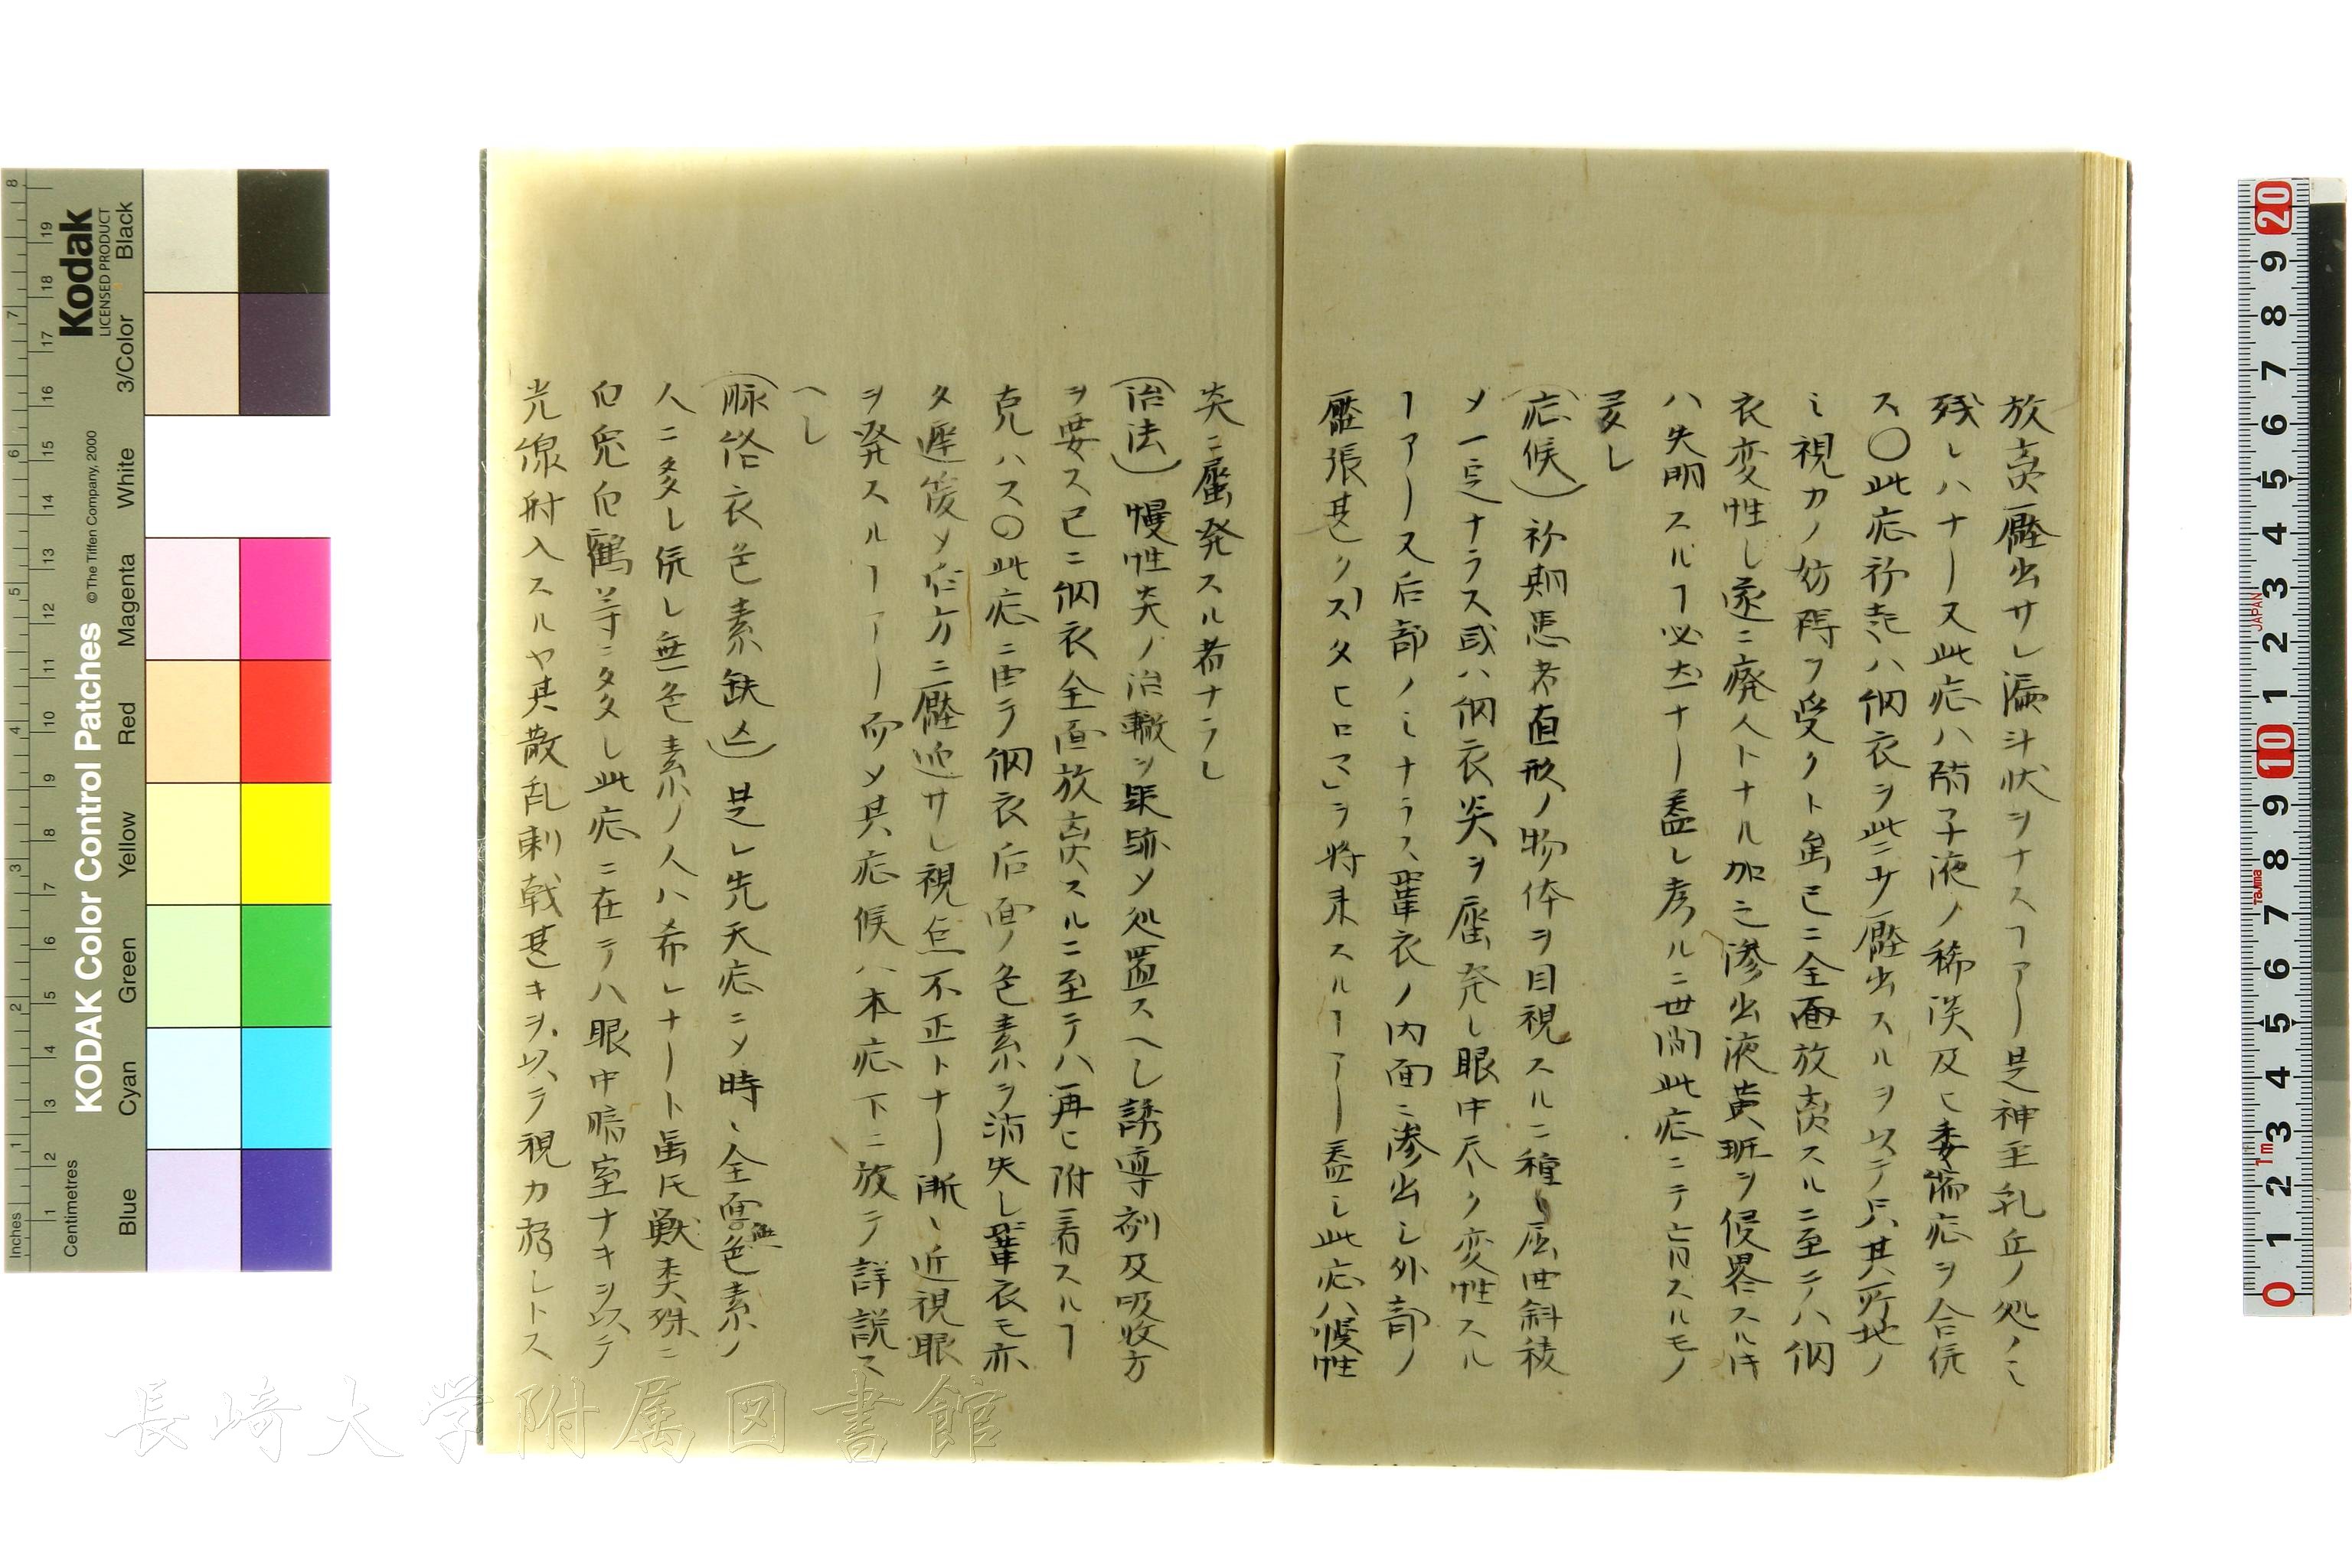 放責壓出サレ漏斗状ヲナスヿアー是神主乳丘ノ処ノミ
残レハナー又此症ハ硝子液ノ稀淡及ヒ委縮症ヲ合併
ス〇此症初起ハ網衣ヲ此ニサ壓出スルヲ以テ只其所地ノ
ミ視力ノ妨碍ヲ受クト虽已ニ全面放責スルニ至テハ網
衣変性し遂ニ廃人トナル加之滲出液黄斑ヲ侵畧スル时
ハ失明スルヿ必然ナー蓋し考ルニ世間此症ニテ盲スルモノ
多し
(症候) 初期患者直形ノ物体ヲ目視スルニ種々屈曲斜稜
メ一定ナラス或ハ網衣炎ヲ屬発し眼中尽ク変性スル
ヿアー又后部ノミナラス鞏衣ノ内面ニ滲出シ外部ノ
壓張甚しク「スタヒロマ」ヲ将来スルヿアー蓋シ此症ハ慢性
炎ニ屬発スル者ナラし
(治法) 慢性炎ノ治轍ヲ眼跡メ処置スヘし誘導剤及吸收方
ヲ要ス已ニ網衣全面放責スルニ至テハ再ヒ附着スルヿ
克ハス〇此症ニ由テ網衣后面ノ色素ヲ消失し鞏衣モ亦
タ遅緩メ后方ニ壓迎サレ視点不正トナー漸〻近視眼
ヲ発スルヿアー而メ其症候ハ本症下ニ放テ詳説ス
へし
(脉絡衣色素缺亡) 是レ先天症ニメ時〻全面無色素ノ
人ニ多し併し無色素ノ人ハ希レナート虽氏獣类殊ニ
白兎白鶴等ニ多々し此症ニ在テハ眼中暗室ナキヲ以テ
光線射入スルヤ其散乱刺戟甚キヲ以テ視力弱しトス
KODAK Color Control Patches
© The Tiffen Company, 2000
Kodak
LICENSED PRODUCT
Inches
Centimetres
Blue
Cyan
Green
Yellow
Red
Magenta
White
3/Color
Black
長崎大学附属図書館